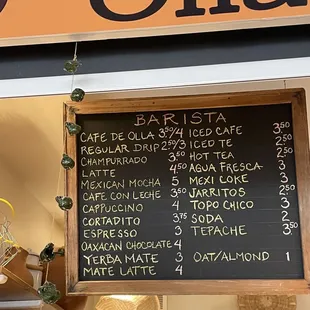 BARISTA
CAFE DE OLLA 3.50/4
REGULAR DRIP 2.50/3
CHAMPURRADO 3.50
LATTE 4.50
MEXICAN MOCHA 5
CAFE CON LECHE 3.50
CAPPUCCINO 4
CORTADITO 3.75
ESPRESSO 3
OAXACAN CHOCOLATE 4
YERBA MATE 3
MATE LATTE 4
ICED CAFE 3.50
ICED TE 2.50
HOT TEA 2.50
AGUA FRESCA 3
MEXI COKE 3
JARRITOS 2.50
TOPO CHICO 3
SODA 2
TEPACHE 3.50
OAT/ALMOND 1